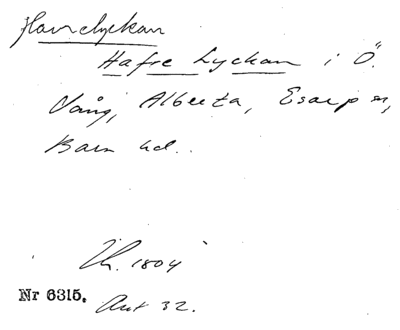 Havrelyckan
Hafre Lyckan i Ö.
Vång, Alberta, Esarp sn,
Bara hd.
Th. 1804
Nr 6315. Akt 32.